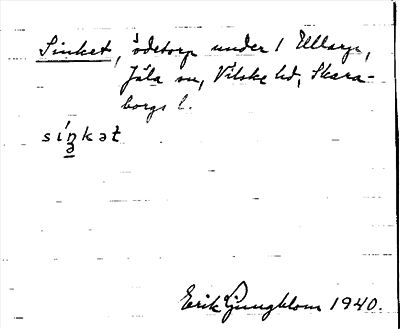 Sinket, ödetorp under 1 Ullarp,
Jäla sn, Vilske hd, Skara-
borgs l.
síŋkət
ə
Erik Ljungblom 1940.